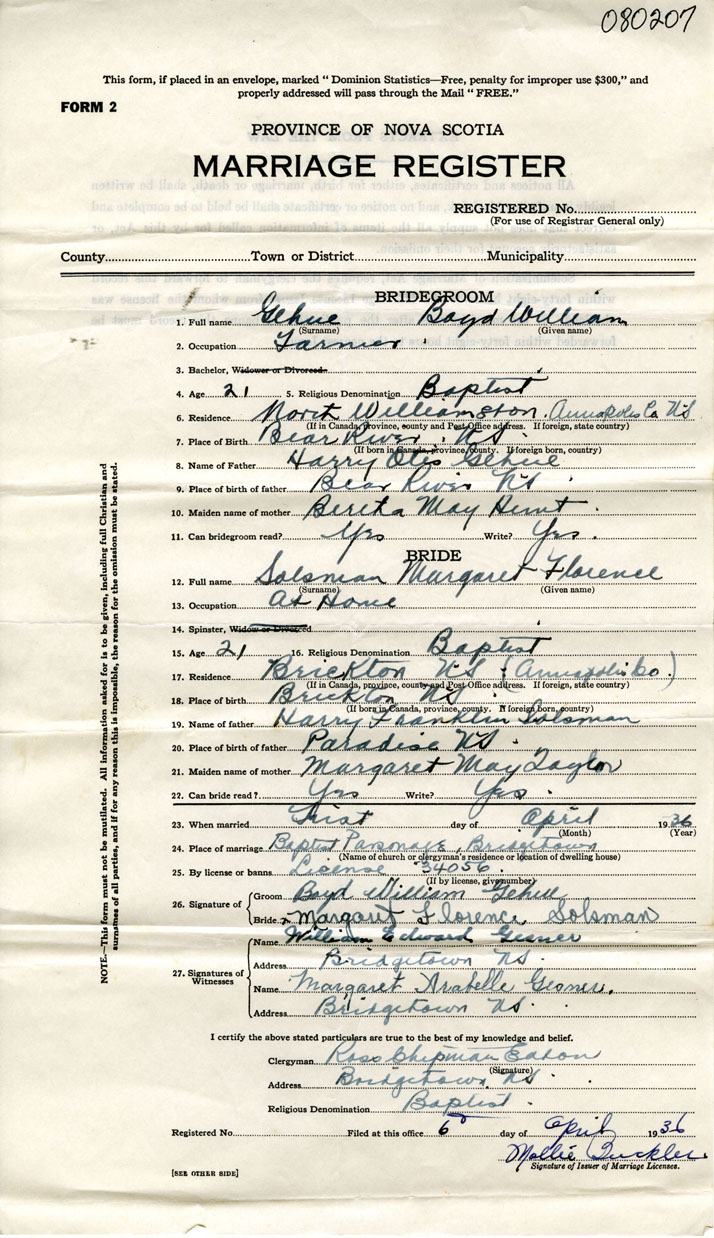 080207
This form, if placed in an envelope, marked "Dominion Statistics—Free, penalty for improper use $300," and
properly addressed will pass through the Mail "FREE."
FORM 2
PROVINCE OF NOVA SCOTIA
MARRIAGE REGISTER
REGISTERED No.
(For use of Registrar General only)
County Town or District Municipality
BRIDEGROOM
1. Full name Gehue Boyd William
(Surname) (Given name)
2. Occupation Farmer
3. Bachelor, Widower or Divorced
4. Age 21 5. Religious Denomination Baptist
6. Residence North Williamston, Annapolis Co NS
(If in Canada, province, county and Post Office address. If foreign, state country)
7. Place of Birth Bear River NS
(If born in Canada, province, county. If foreign born, country)
8. Name of Father Harry Otis Gehue
9. Place of birth of father Bear River NS
10. Maiden name of mother Bertha May Hunt
11. Can bridegroom read? Yes Write? Yes
BRIDE
12. Full name Solsman Margaret Florence
(Surname) (Given name)
13. Occupation At Home
14. Spinster, Widow or Divorced
15. Age 21 16. Religious Denomination Baptist
17. Residence Brickton NS (Annapolis Co)
(If in Canada, province, county and Post Office address. If foreign, state country)
18. Place of birth Brickton NS
(If born in Canada, province, county. If foreign born, country)
19. Name of father Harry Franklin Solsman
20. Place of birth of father Paradise NS
21. Maiden name of mother Margaret May Taylor
22. Can bride read? Yes Write? Yes
23. When married First day of April 1936
(Month) (Year)
24. Place of marriage Baptist Parsonage, Bridgetown
(Name of church or clergyman's residence or location of dwelling house)
25. By license or banns License 34056
(If by license, give number)
26. Signature of Groom Boyd William Gehue
Bride Margaret Florence Solsman
27. Signatures of Witnesses
Name William Edward Gesner
Address Bridgetown NS
Name Margaret Arabelle Gesner
Address Bridgetown NS
I certify the above stated particulars are true to the best of my knowledge and belief.
Clergyman Ross Chipman Eaton
(Signature)
Address Bridgetown, NS
Religious Denomination Baptist
Registered No. Filed at this office 6 day of April 1936
Mollie Buckler
Signature of Issuer of Marriage Licenses.
[SEE OTHER SIDE]
NOTE.—This form must not be mutilated. All information asked for is to be given, including full Christian and
surnames of all parties, and if for any reason this is impossible, the reason for the omission must be stated.